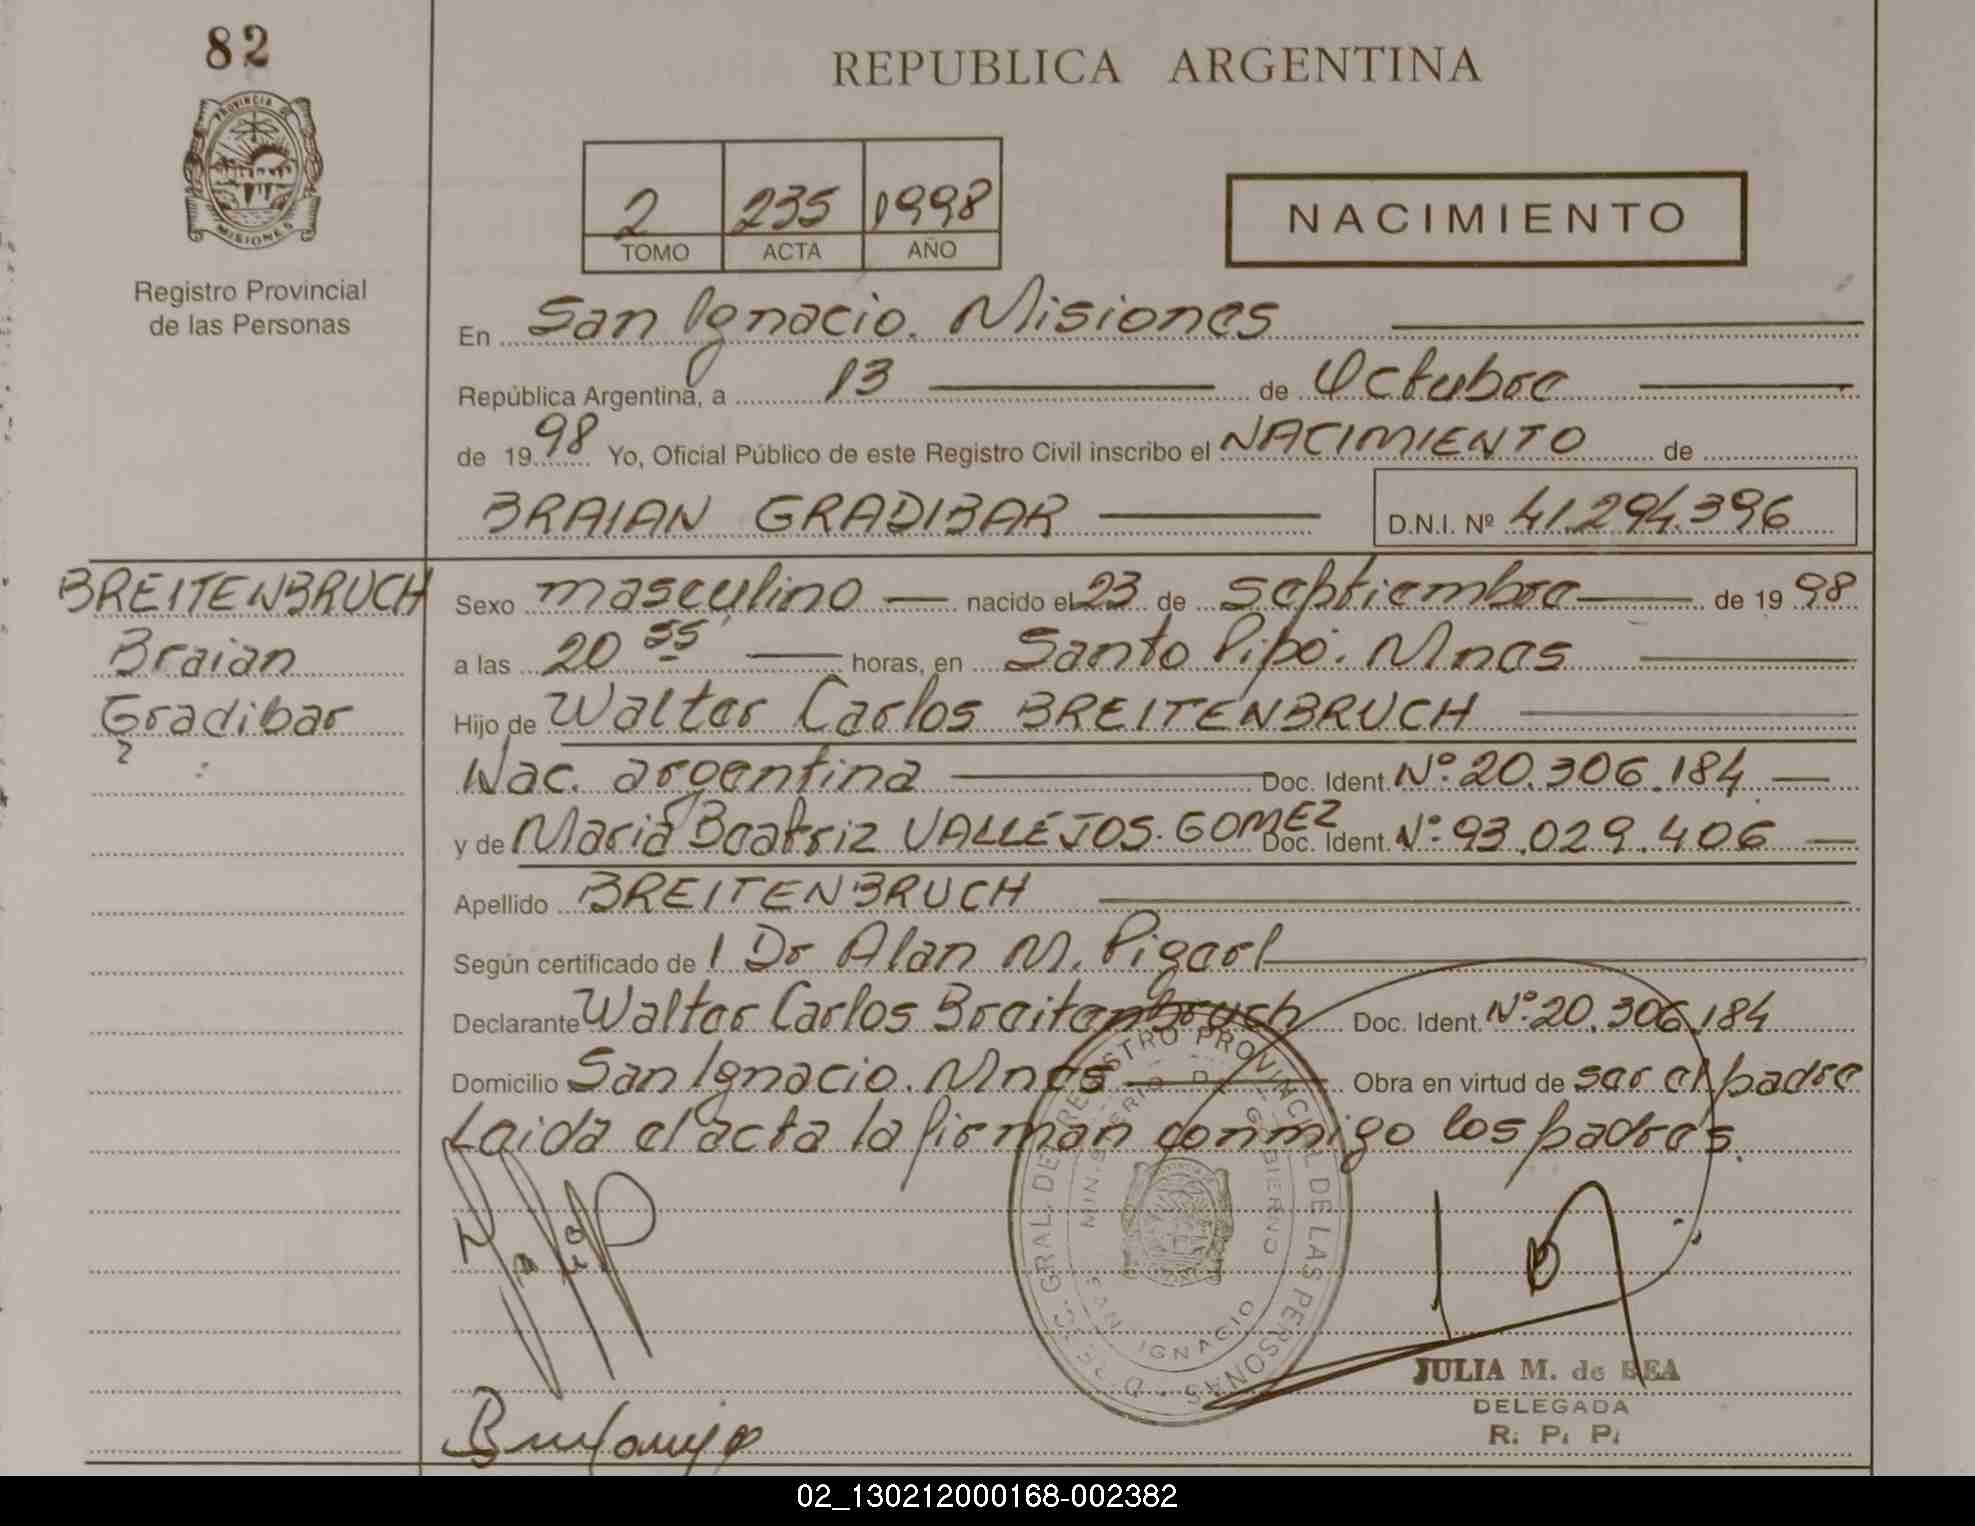 82
PROVINCIA DE
MISIONES
Registro Provincial
de las Personas
REPUBLICA ARGENTINA
2 235 1998
TOMO ACTA AÑO
NACIMIENTO
En San Ignacio. Misiones
República Argentina, a 13 de Octubre
de 1998 Yo, Oficial Público de este Registro Civil inscribo el NACIMIENTO de
BRAIAN GRADIBAR D.N.I. Nº 41.294.396
BREITENBRUCH
Braian
Gradibar
Sexo masculino nacido el 23 de septiembre de 1998
a las 20 55 horas, en Santo Pipó. Mnes
Hijo de Walter Carlos BREITENBRUCH
Nac. argentina Doc. Ident. Nº 20.306.184
y de Maria Beatriz VALLEJOS. GOMEZ Doc. Ident. Nº 93.029.406
Apellido BREITENBRUCH
Según certificado de 1 Dr Alan M.
Declarante Walter Carlos Breitenbruch Doc. Ident. Nº 20.306.184
Domicilio San Ignacio. Mnes Obra en virtud de ser el padre
Leida el acta la firman conmigo los padres.
DIREC. GRAL. DE REGISTRO PROVINCIAL DE LAS PERSONAS
MINISTERIO DE GOBIERNO
SAN IGNACIO
JULIA M. de BEA
DELEGADA
R. P. P.
02_130212000168-002382